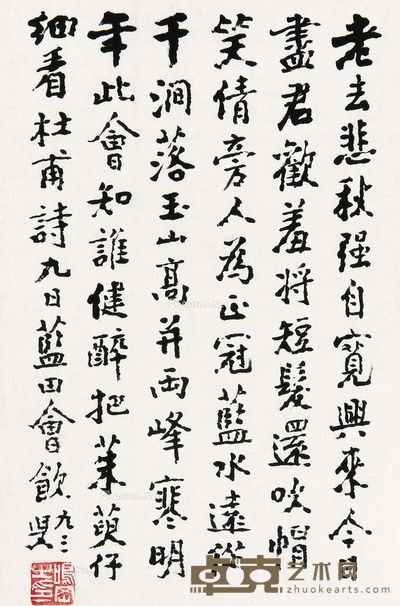 老去悲秋强自寬興来今日
盡君歡羞将短髮還吹帽
笑倩旁人為正冠藍水遠從
千澗落玉山髙并兩峰寒明
年此會知誰健醉把茱萸仔
細看杜甫詩九日藍田會飲九二
卓克艺术网
www.zhuokearts.com